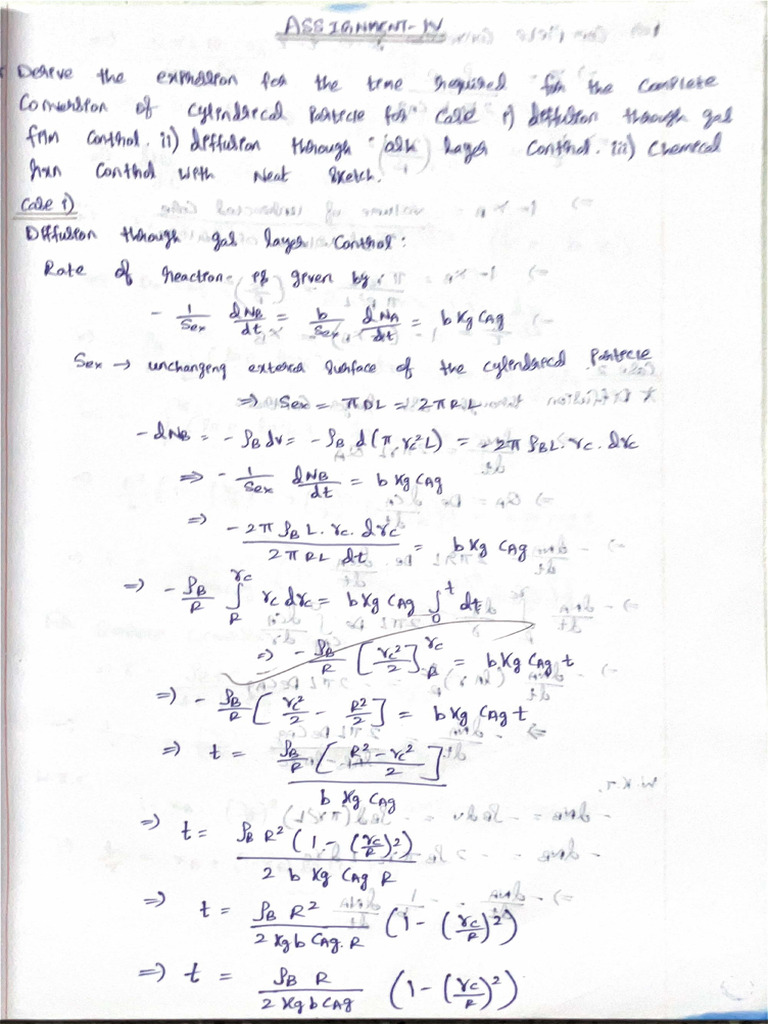 ASSIGNMENT-IV
Derive the expression for the time required for the complete
Conversion of cylindrical Particle for Case i) diffusion through gas
film Control. ii) diffusion through ash layer Control. iii) Chemical
rxn Control with Neat Sketch.
Case i)
Diffusion through gas layer control:
Rate of reaction is given by:
- 1/Sex dNB/dt = b/Sex dNA/dt = b Kg CAg
Sex → unchanging external surface of the cylindrical Particle
⇒ Sex = πDL = 2πRL
- dNB = - ρB dv = - ρB d(π rc² L) = -2π ρB L. rc. drc
⇒ - 1/Sex dNB/dt = b Kg CAg
⇒ -2π ρB L. rc. drc / 2πRL dt = b Kg CAg
⇒ - ρB/R ∫_R^rc rc drc = b Kg CAg ∫_0^t dt
⇒ - ρB/R [rc²/2]_R^rc = b Kg CAg t
⇒ - ρB/R [rc²/2 - R²/2] = b Kg CAg t
⇒ t = ρB/R [R² - rc² / 2] / b Kg CAg
⇒ t = ρB R² (1 - (rc/R)²) / 2 b Kg CAg R
⇒ t = ρB R² / 2 Kg b CAg. R (1 - (rc/R)²)
⇒ t = ρB R / 2 Kg b CAg (1 - (rc/R)²)